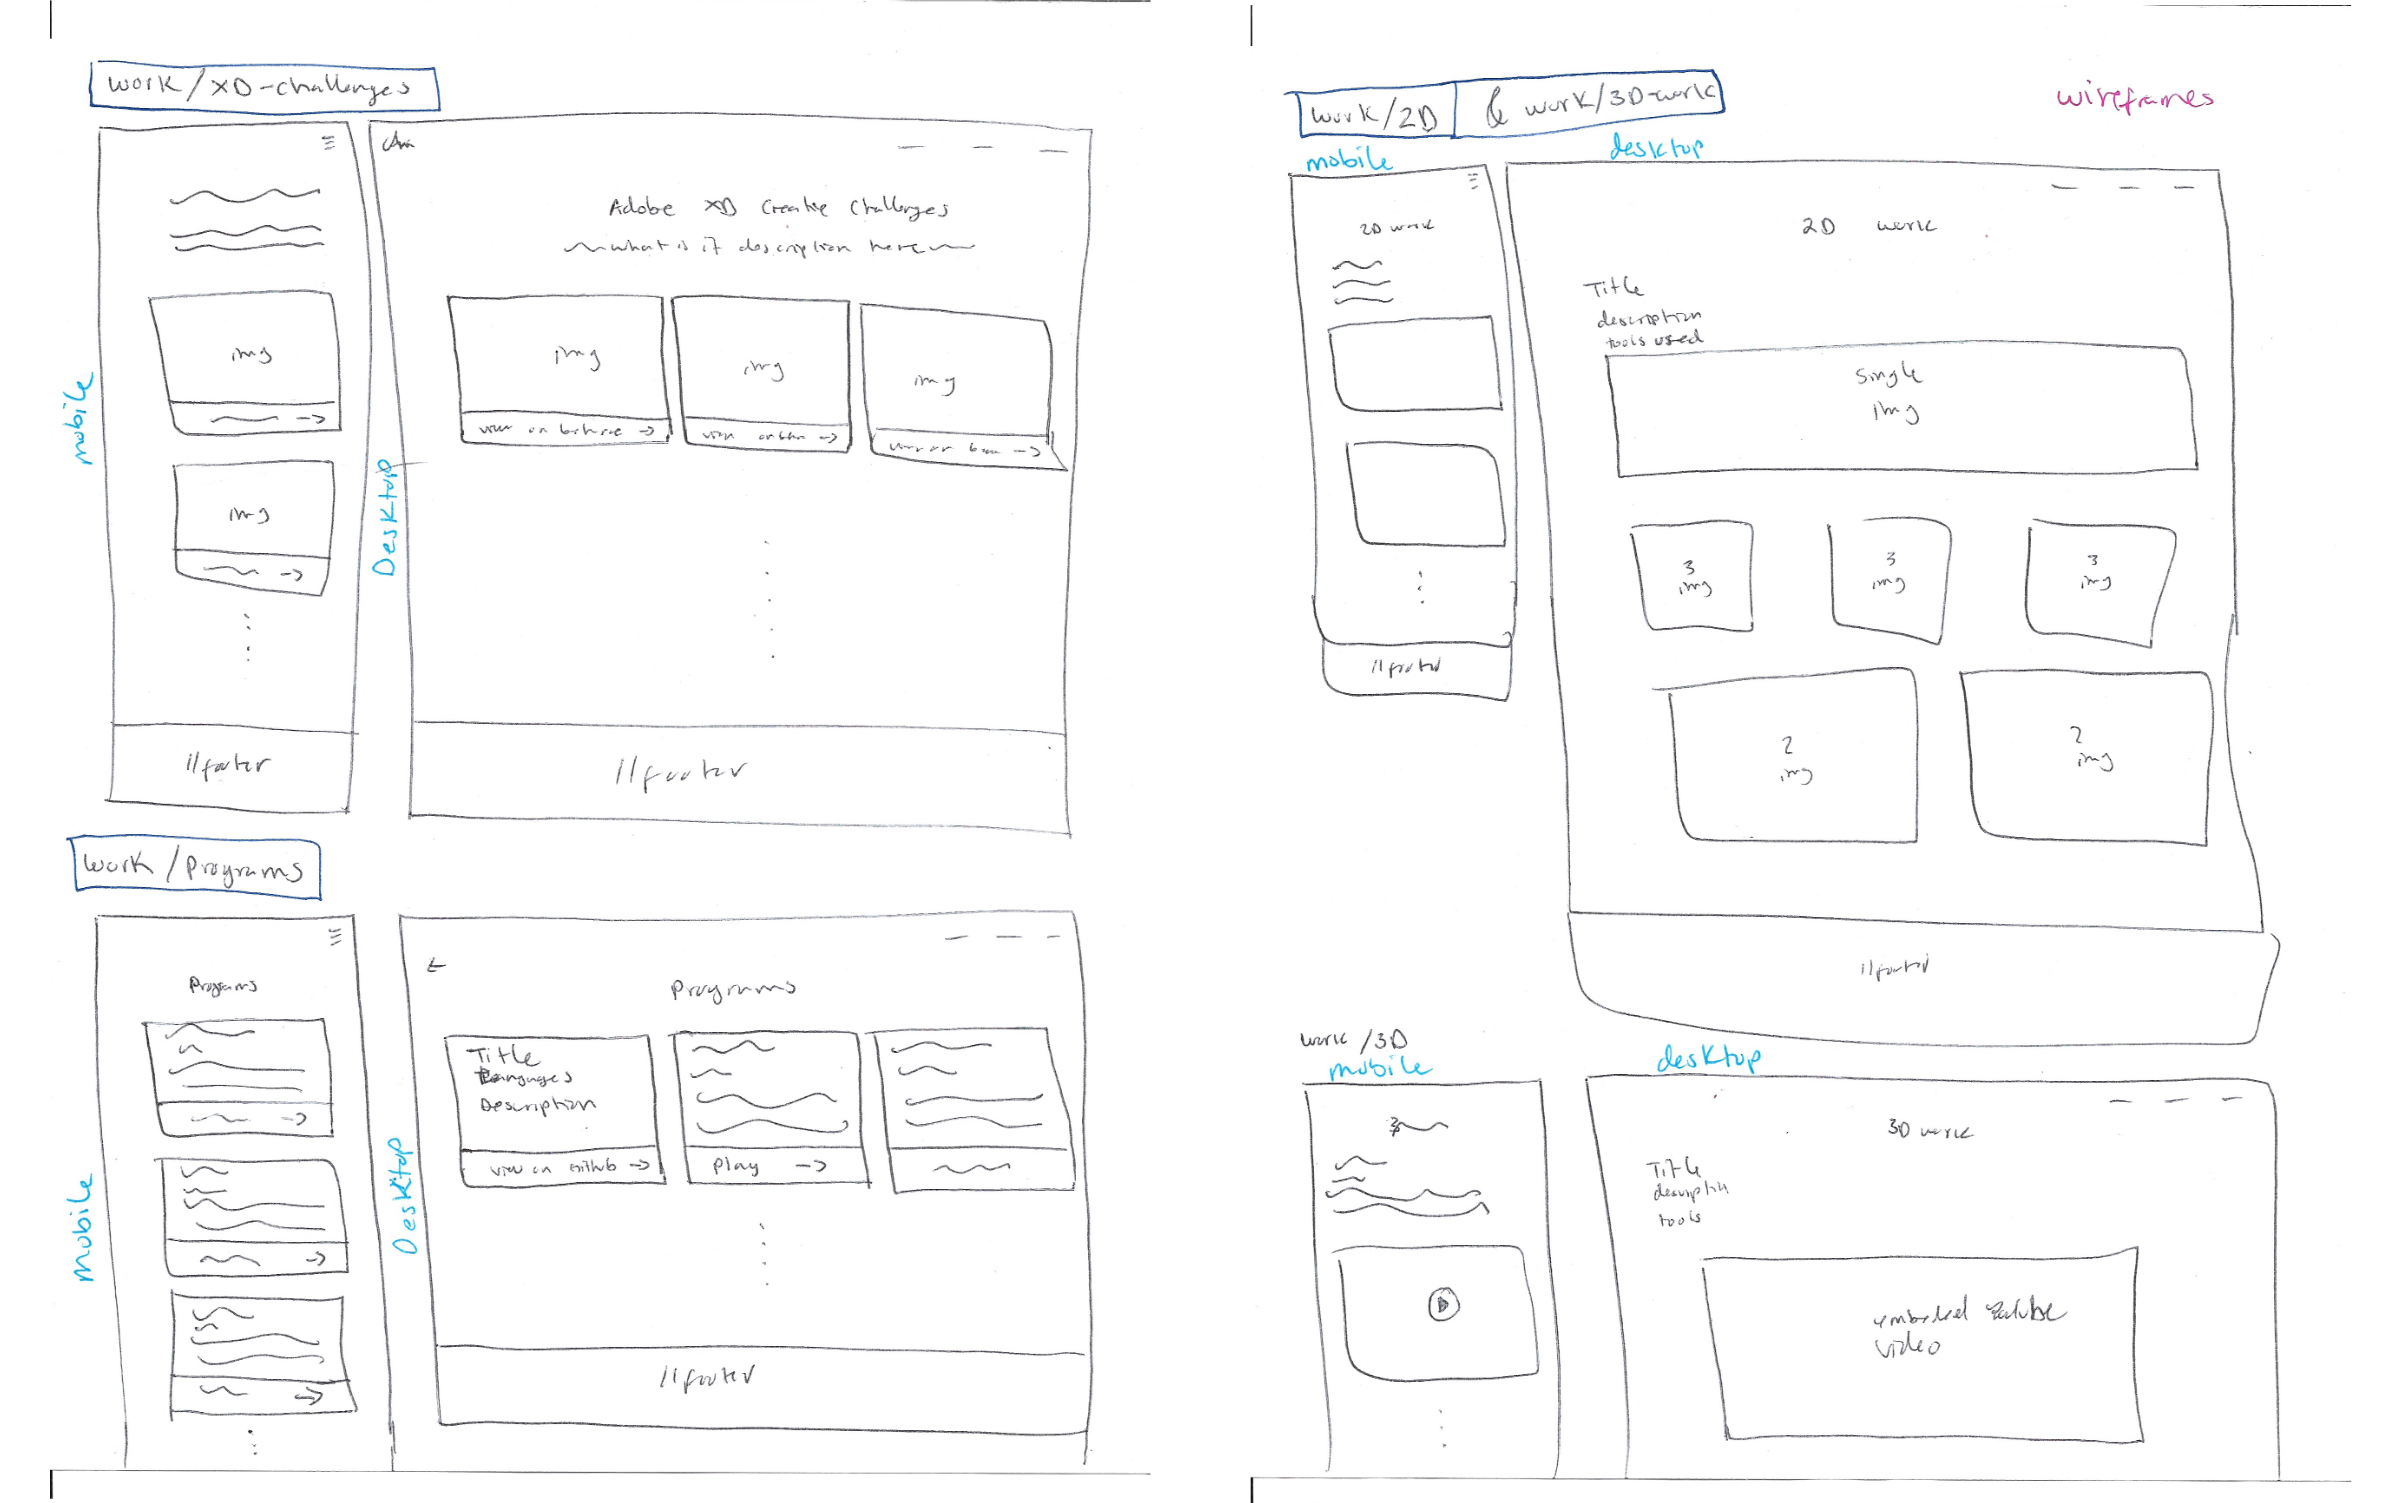 work/XD-challenges
mobile
img
img
//footer
Desktop
Adobe XD Creative Challenges
what is it description here
img
img
img
view on behance →
view on →
→
//footer
work/Programs
mobile
Programs
Desktop
Programs
Title
Languages
Description
view on Github →
Play →
//footer
wireframes
work/2D & work/3D-work
mobile
2D work
//footer
desktop
2D work
Title
description
tools used
single
img
3
img
3
img
3
img
2
img
2
img
//footer
work/3D
mobile
desktop
3D work
Title
description
tools
embedded Youtube
video